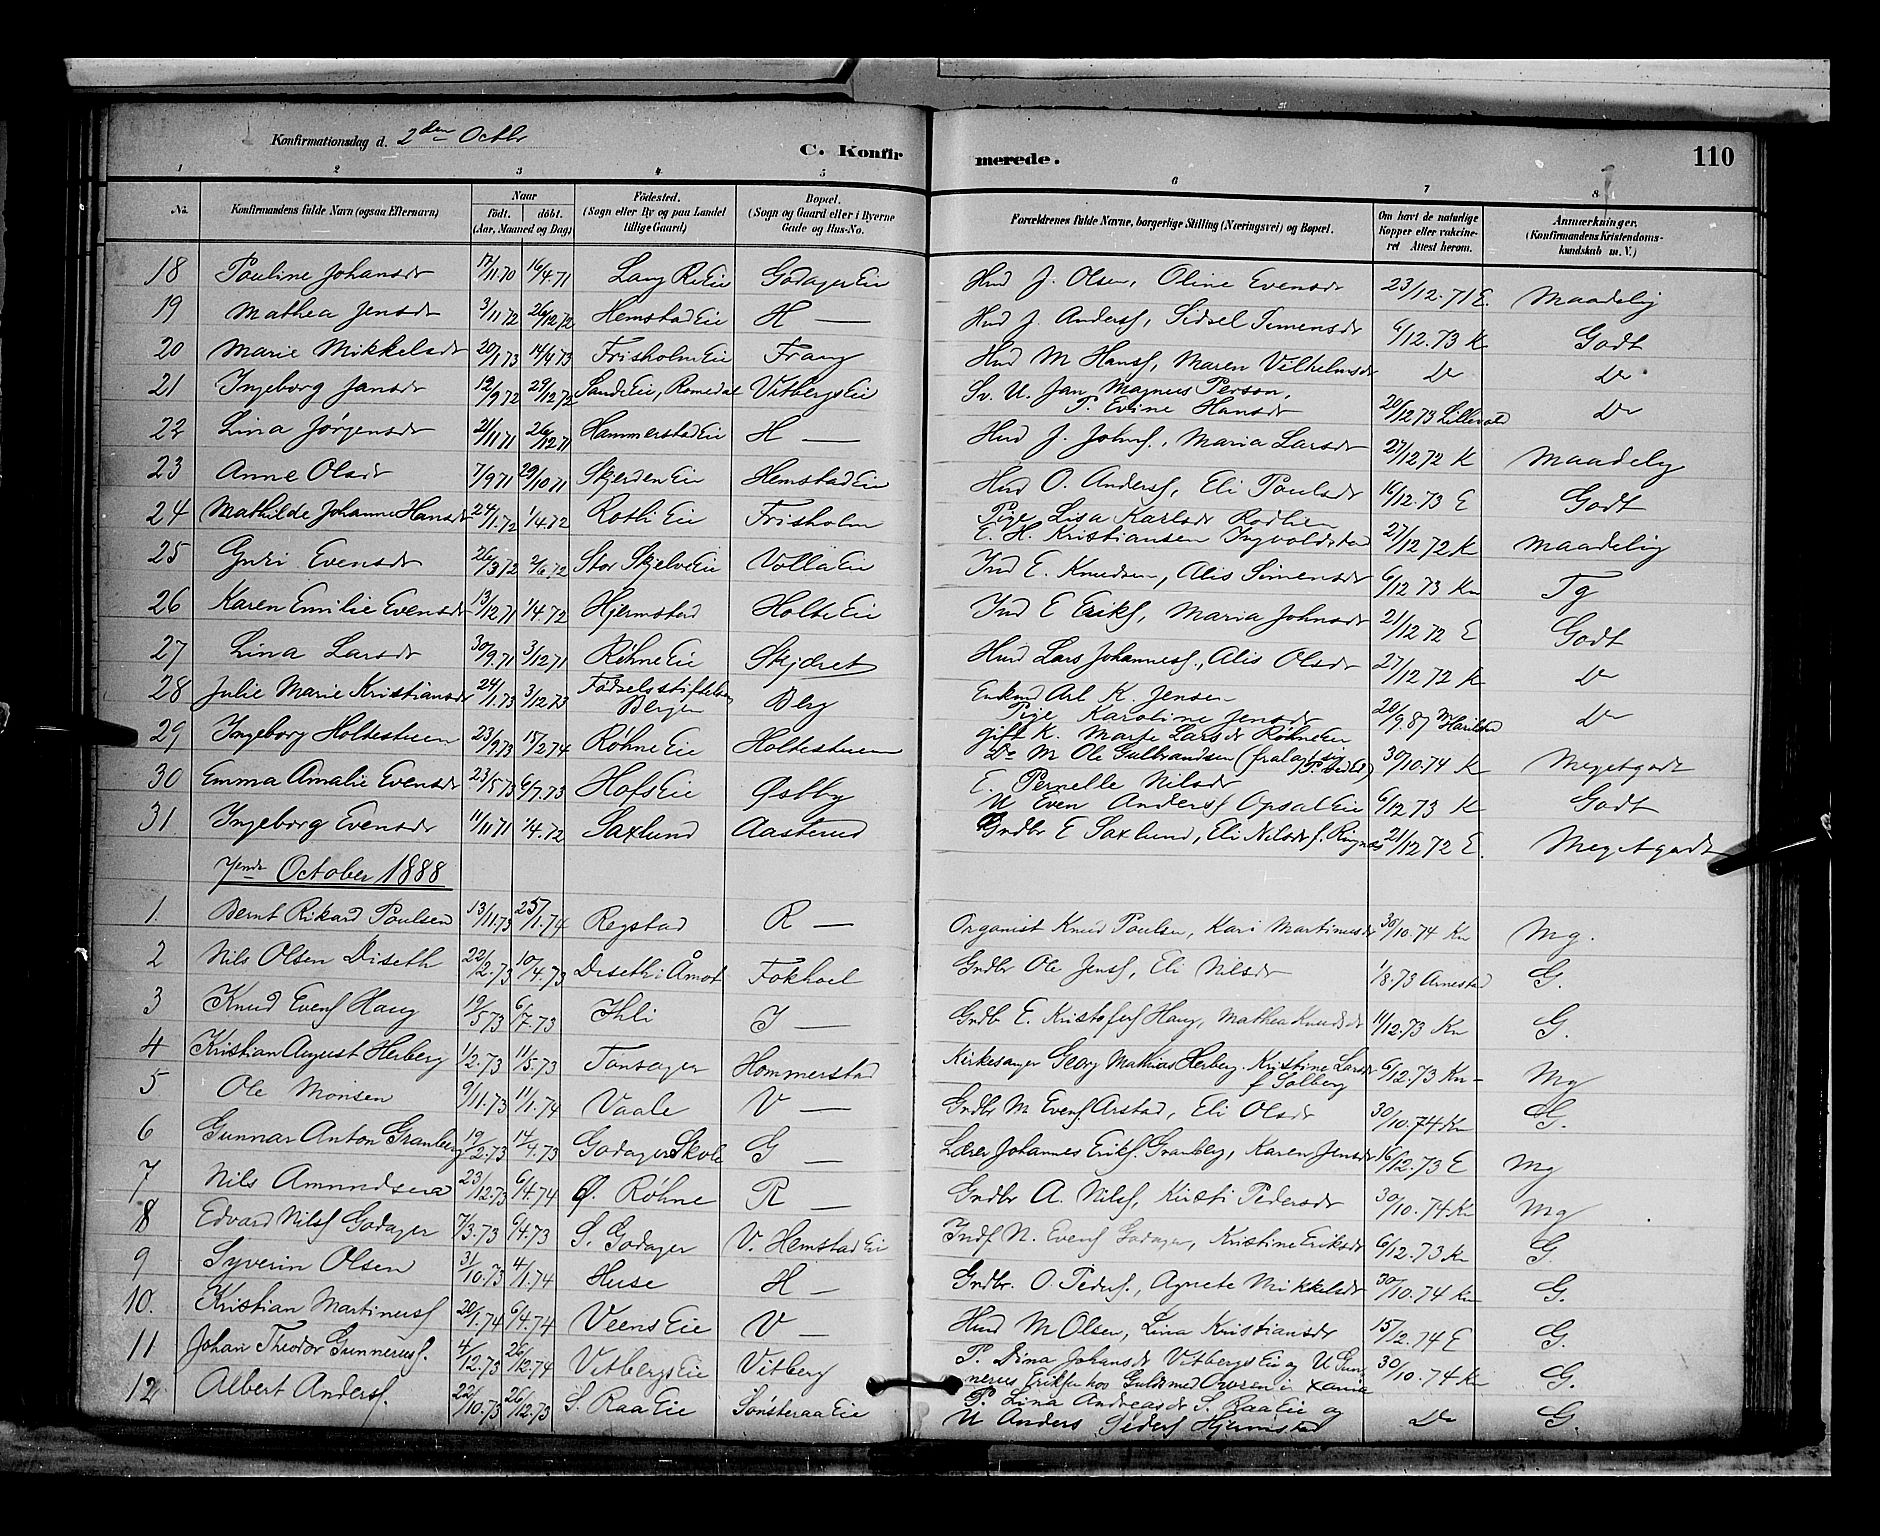 Konfirmationsdag d. 2den Octbr C. Konfirmerede. 110
1 2 3 4 5 6 7 8
No. Konfirmandens fulde Navn (ogsaa Efternavn) Naar født. døbt. (Aar, Maaned og Dag) Fødested. (Sogn eller By og paa Landet tillige Gaard) Bopæl. (Sogn og Gaard eller i Byerne Gade og Hus-No. Forældrenes fulde Navne, borgerlige Stilling (Næringsvei) og Bopæl. Om havt de naturlige Kopper eller vakcineret Attest herom. Anmærkninger. (Konfirmandens Kristendomskundskab m. V.)
18 Pauline Johansdr 17/11 70 16/4.71 Lang Re Eie Godager Eie Husm J. Olsen, Oline Evensdr 23/12.71 E. Maadelig
19 Mathea Jensdr 3/11 72 26/12 72 Hemstad Eie H — Husm J. Anders., Sidsel Simensdr 6/12.73 K Godt
20 Marie Mikkelsdr 20/1 73 14/4 73 Frisholm Eie Frang Husm M Hans., Maren Vilhelmsdr Do Do
21 Ingeborg Jansdr 12/9 72 29/12 72 Sande Eie, Romedal Vitbergs Eie Sv. U. Jan Magnus Person, P. Evine Hansdr 26/12 73 Lillevold Do
22 Lina Jørgensdr 21/11 71 26/12 71 Hammerstad Eie H — Husm J. Johns., Maria Larsdr 27/12 72 K Maadelig
23 Anne Olsdr 7/9 71 29/10 71 Skjerden Eie Hemstad Eie Husm O. Anders., Eli Poulsdr 16/12.73 E Godt
24 Mathilde Johanne Hansdr 24/1.72 1/4.72 Roth Eie Frisholm Pige Lisa Karlsdr Rodlien E. H. Kristiansen Ingvoldstad 27/12 72 K Maadelig
25 Guri Evensdr 26/3 72 2/6.72 Stor Skjelve Eie Volla Eie Ind E. Knudsen, Alis Simensdr 6/12 73 Kn Tg
26 Karen Emilie Evensdr 13/12 71 1/4.72 Hjermstad Holte Eie Ind E Eriks., Maria Johnsdr 21/12 72 E Godt
27 Lina Larsdr 30/9.71 3/12 71 Røhne Eie Skjæret Husm Lars Johannes., Alis Olsdr 27/12 72 K Do
28 Julie Marie Kristiansdr 24/1.73 3/12 73 Fødselsstiftelsen Bergen Berg Enkem Arb K. Jensen Pige Karoline Jensdr 20/9.87 Do
29 Ingeborg Holtestuen 23/9 73 15/2 74 Røhne Eie Holtestuen gift K. Marte Larsdr Røhne Eie Do M Ole Gulbrandsen 30/10.74 K Megetgodt
30 Emma Amalie Evensdr 23/5 73 6/7.73 Hofs Eie Østby E. Pernelle Nilsdr U Even Anders. Opsal Eie 6/12 73 K Godt
31 Ingeborg Evensdr 11/11 71 1/4.72 Saxlund Aasterud Grdbr E Saxlund, Eli Nilsdr f. Ringnes 21/12 72 E. Megetgodt
7nde October 1888
1. Bernt Rikard Poulsen 13/11.73 25/1.74 Regstad R — Organist Knud Poulsen, Kari Martinusdr 30/10.74 Kn Mg.
2 Nils Olsen Diseth 22/2.73 10/4.73 Diseth i Åmot Fokhoel Grdbr Ole Jens., Eli Nilsdr 1/8.73 Arnestad G.
3 Knud Evens. Haug 19/5 73 6/7.73 Ihli I — Grdb. E. Kristofers. Haug, Mathea Knudsdr 11/12.73 Kn G.
4 Kristian August Herberg 1/2.73 11/5.73 Tonsager Hommerstad Kirkesanger Georg Mathias Herberg. Kristine Larsdr f Solberg 6/12.73 Kn- Mg
5 Ole Monsen 9/11.73 11/1.74 Vaale V — Grdbr M Evens. Arstad, Eli Olsdr 30/10.74 Kn G.
6 Gunnar Anton Granberg 19/2.73 14/4.73 Godager Skole G — Lærer Johannes Eriks. Granberg, Karen Jensdr 16/12.73 E Mg
7 Nils Amundsen 23/12.73 6/4.74 Ø. Røhne R — Grdbr A. Nils., Kirsti Pedersdr 30/10.74 Kn Mg
8 Edvard Nils. Godager 7/3.73 6/4.73 S. Godager V. Hemstad Ei Inds N. Evens. Godager, Kristine Eriksdr 6/12.73 Kn G.
9 Syverin Olsen 31/10.73 4/1.74 Huse H — Grdbr. O. Peders., Agnete Mikkelsdr 30/10.74 Kn G.
10. Kristian Martinus. 20/1.74 6/4.74 Veens Eie V — Husm M Olsen, Lina Kristiansdr 15/12.74 E G.
11 Johan Theodor Gunnerus. 4/12.73 26/12.74 Vitbergs Eie Vitberg P. Dina Johansdr Vitbergs Eie og U Gunnerus Eriksen hos Guldsmed i Xania 30/10.74 Kn G.
12 Albert Anders. 22/10.73 26/12.73 S. Raa Eie Sønsteraa Eie P. Lina Andreasdr S. Raa Eie og U Anders Peders. Hjermstad Do G.